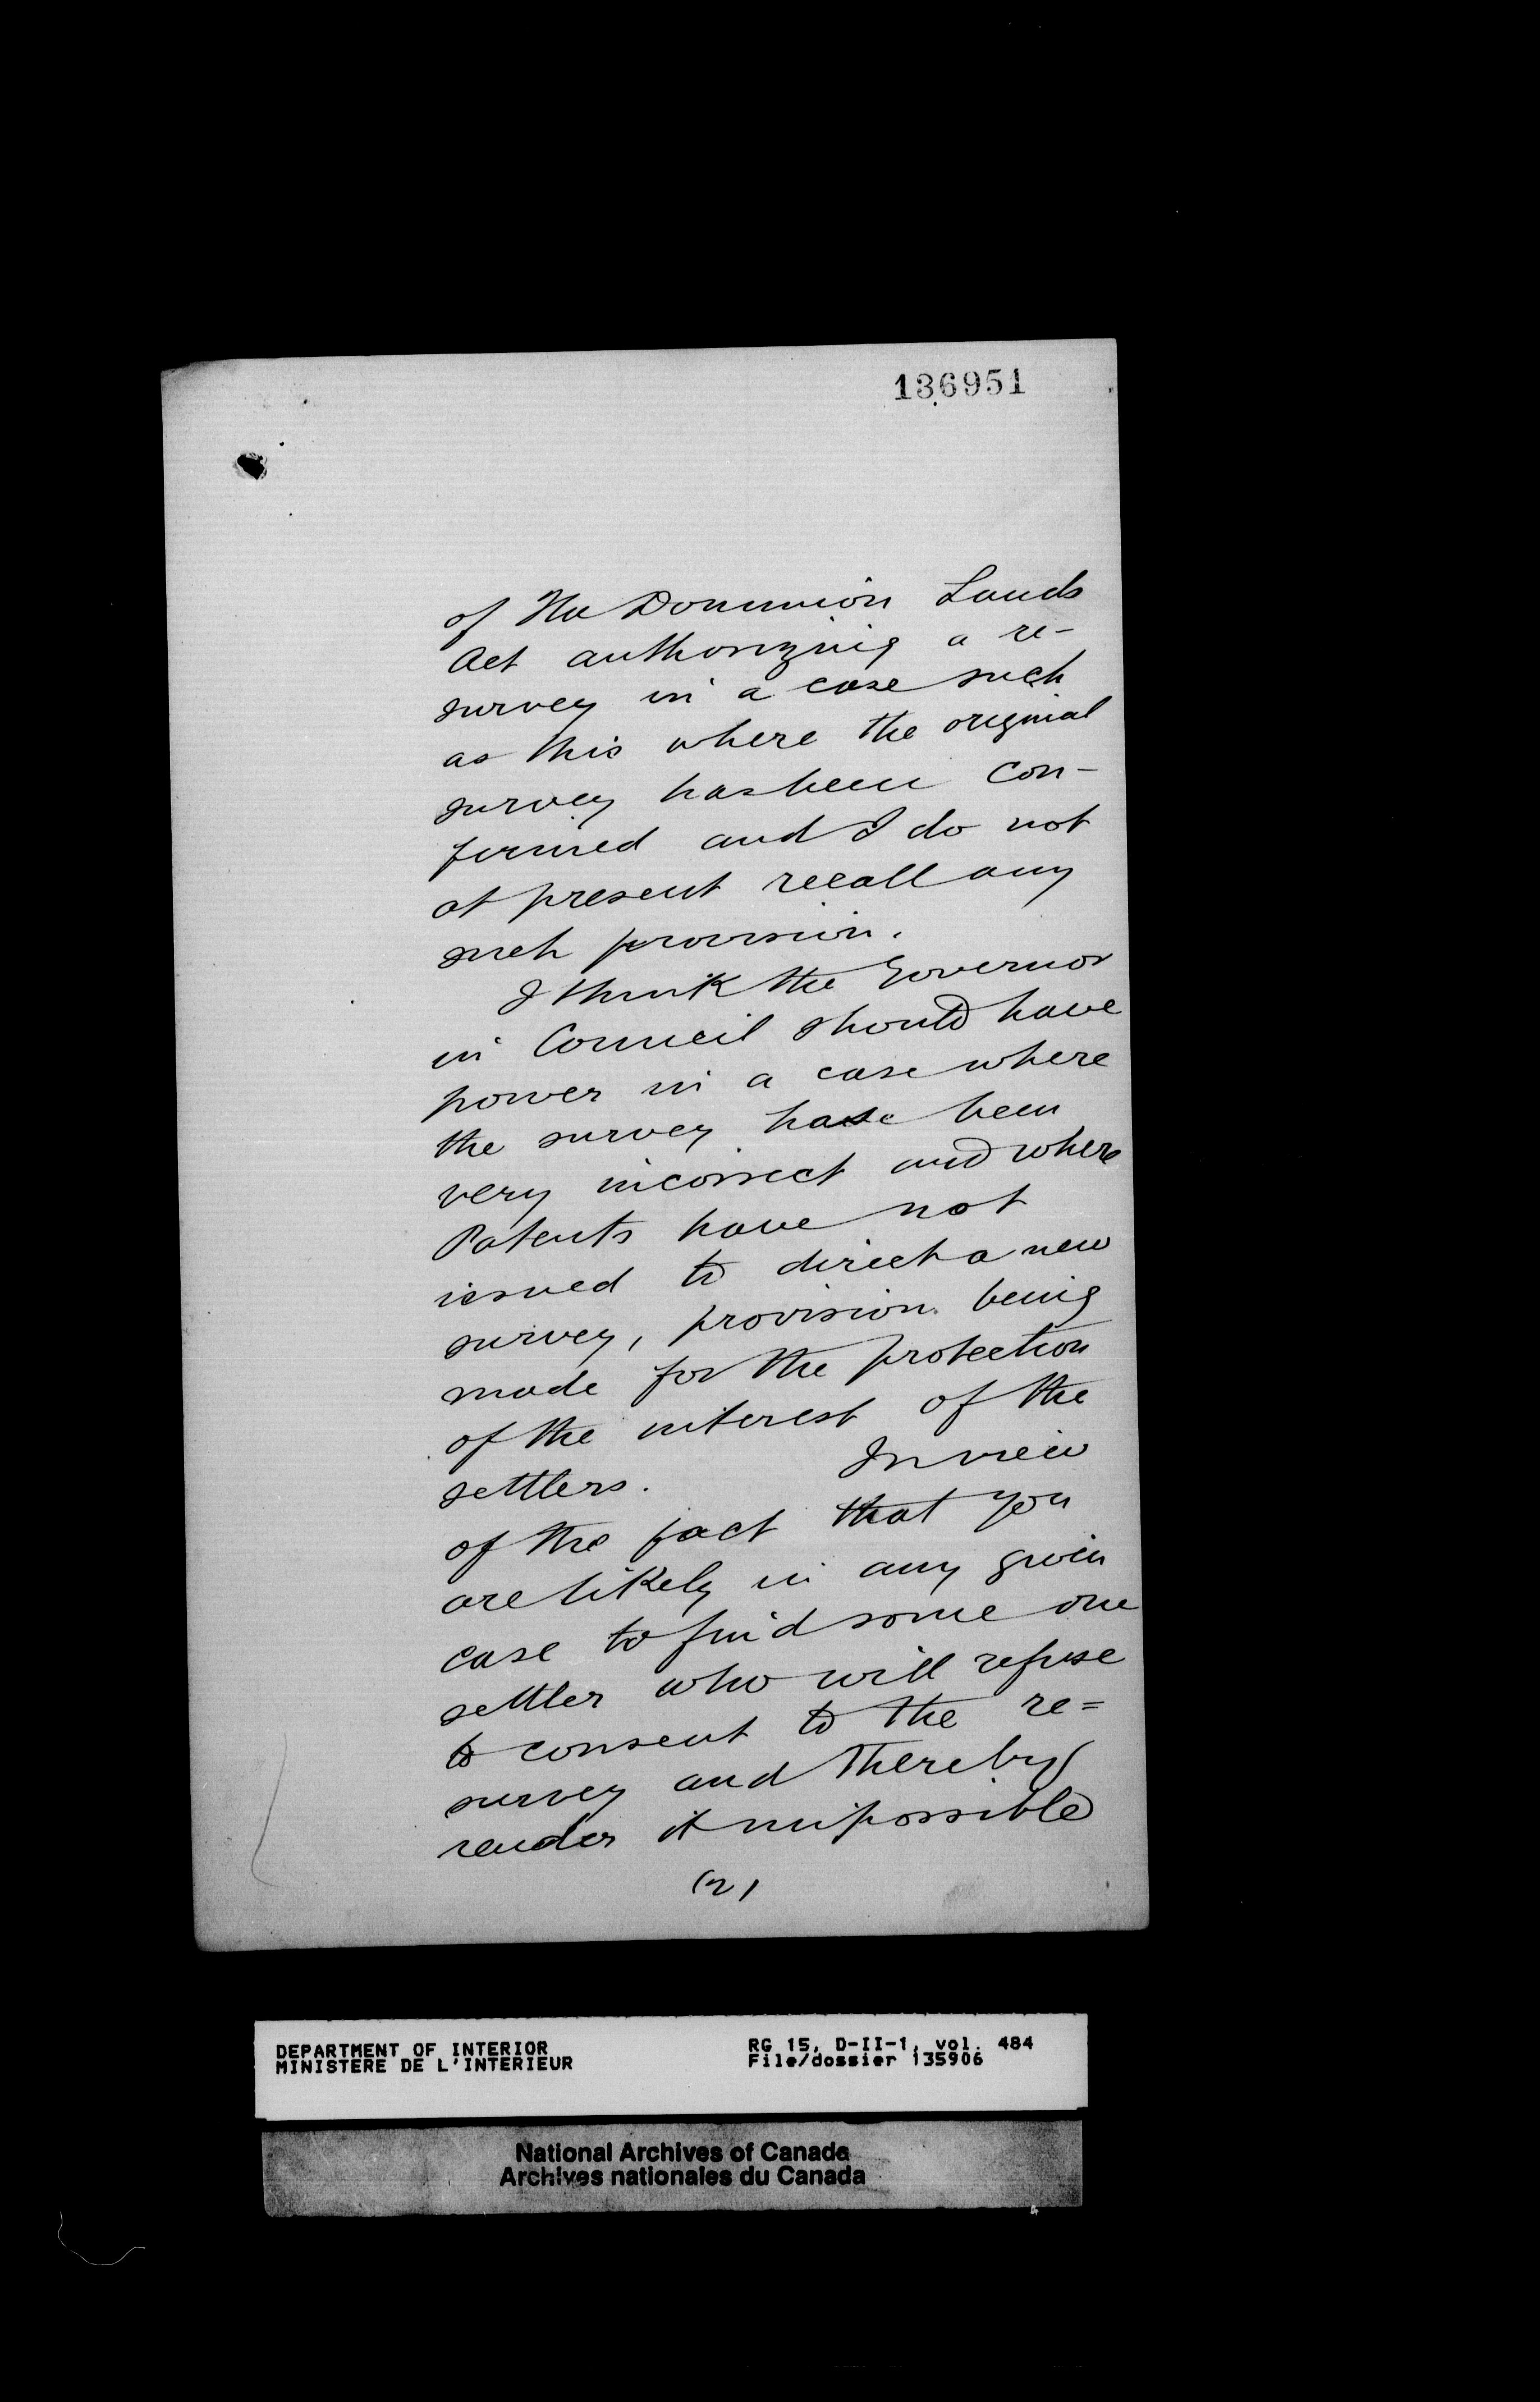 136951
of the Dominion Lands
Act authorizing a re-
survey in a case such
as this where the original
survey has been con-
firmed and I do not
at present recall any
such provision.
I think the Governor
in Council should have
power in a case where
the survey has been
very incorrect and where
Patents have not
issued to direct a new
survey, provision being
made for the protection
of the interest of the
settlers. In view
of the fact that you
are likely in any given
case to find some one
settler who will refuse
to consent to the re=
survey and thereby
render it impossible
(2)
DEPARTMENT OF INTERIOR
MINISTERE DE L'INTERIEUR
RG 15, D-II-1, vol. 484
File/dossier 135906
National Archives of Canada
Archives nationales du Canada